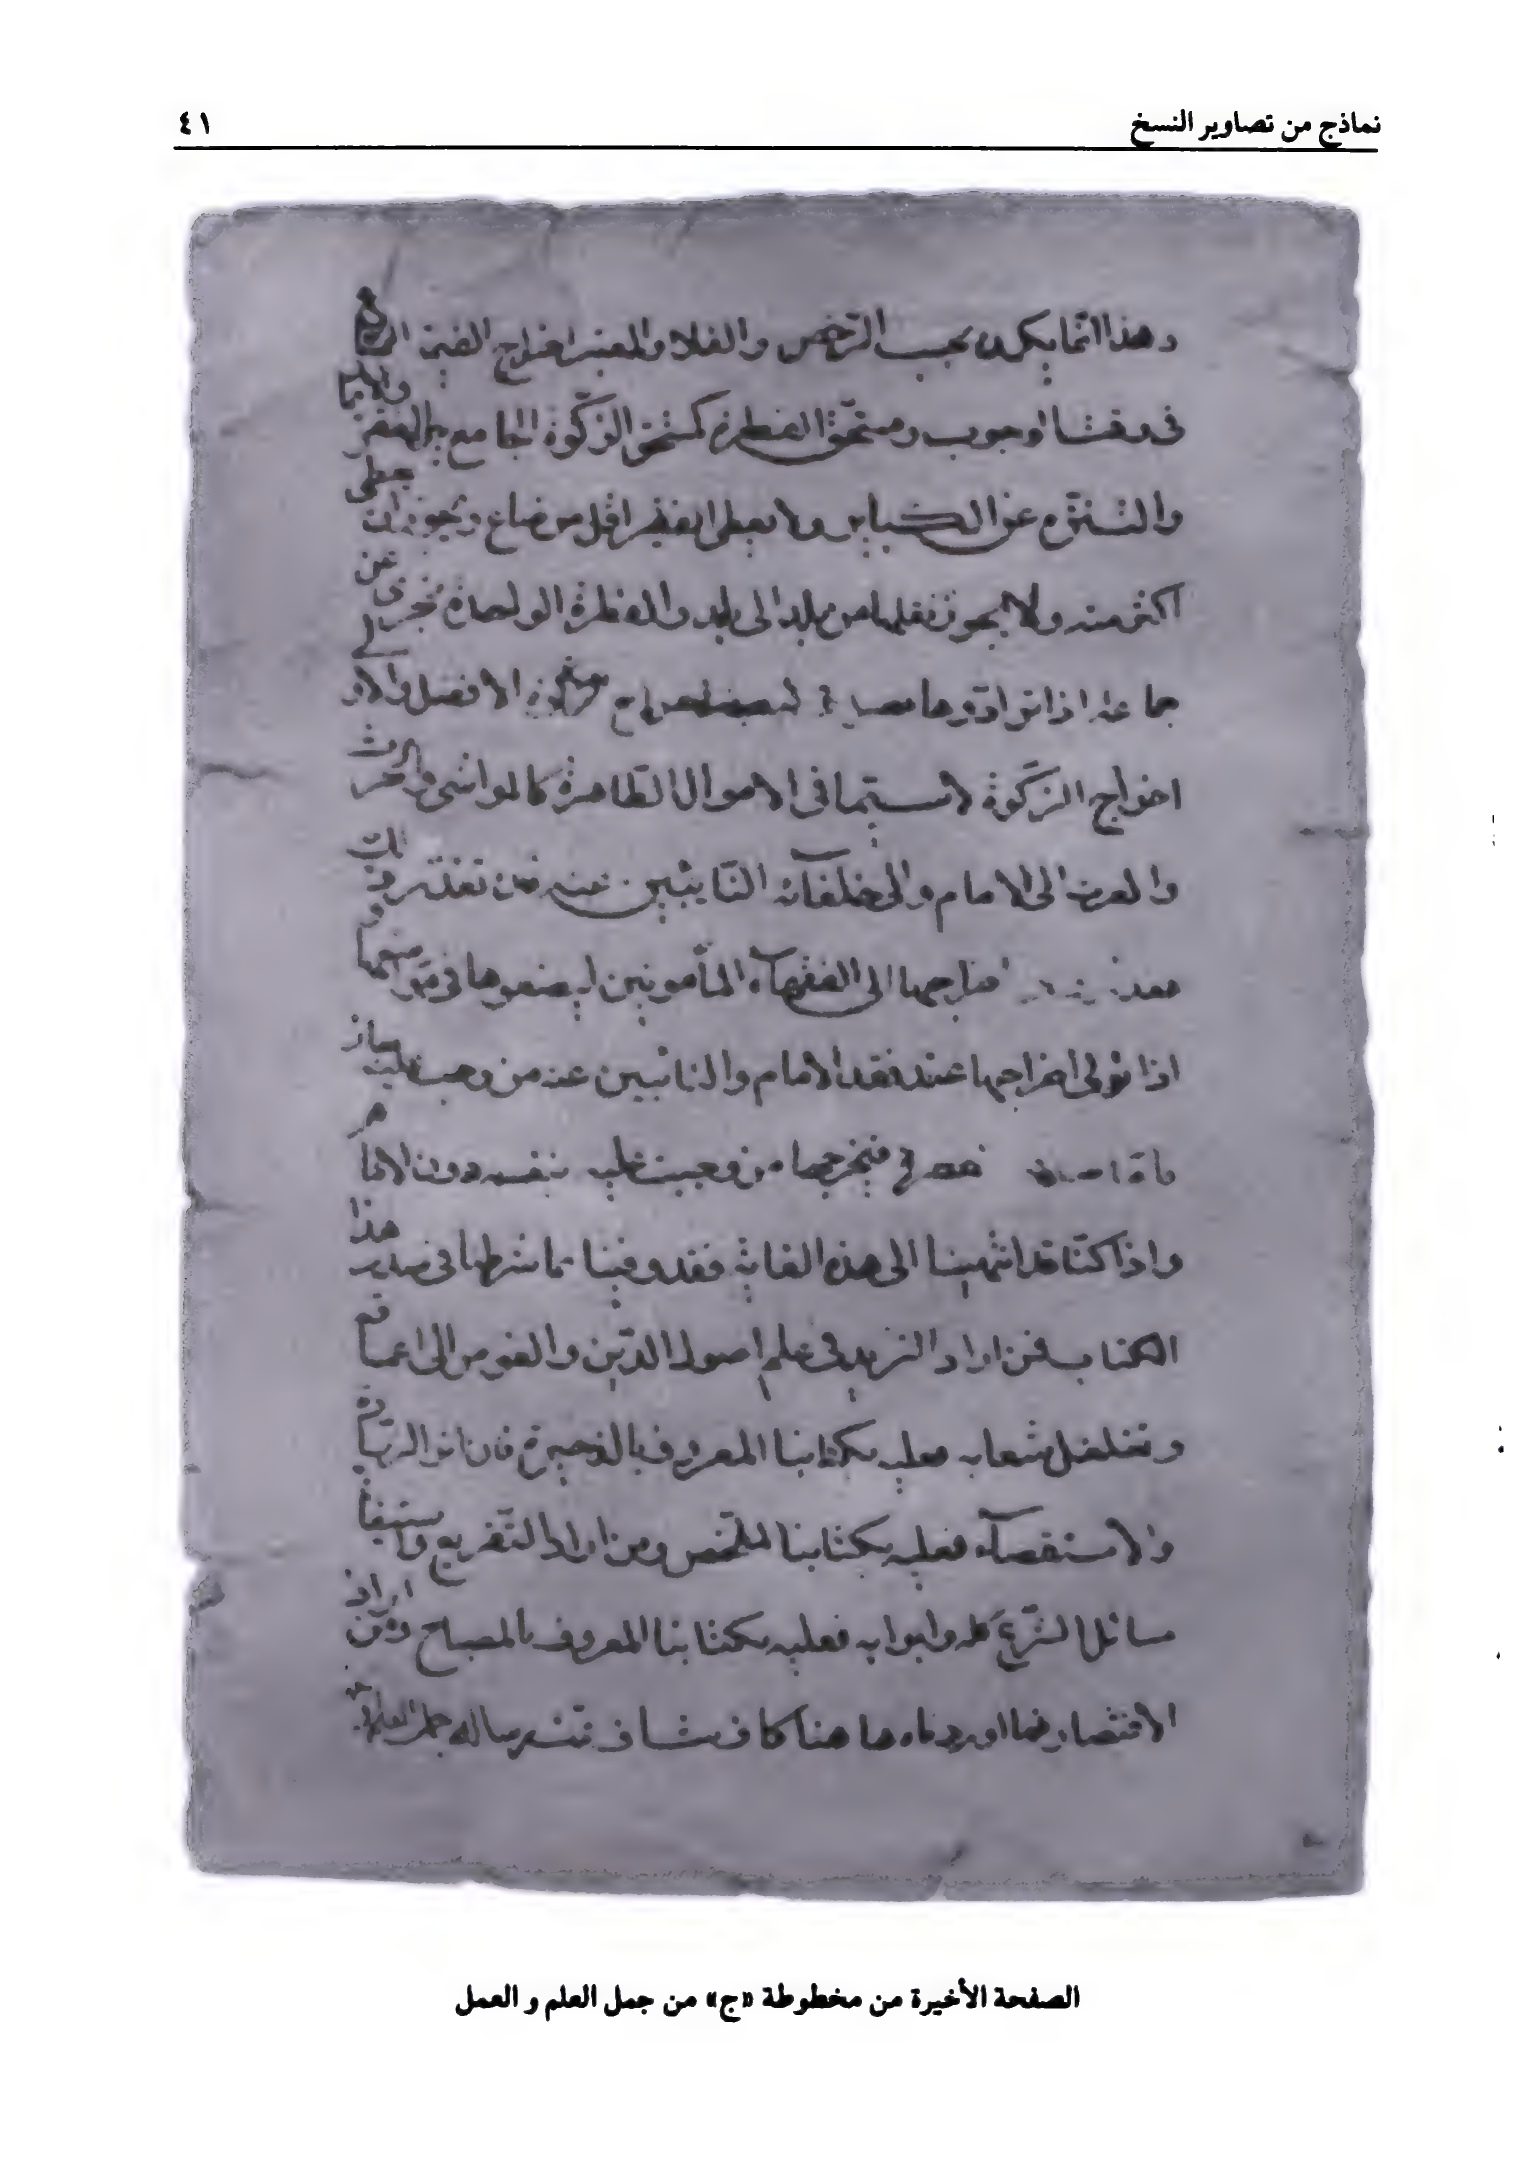 نماذج من تصاوير النسخ ٤١
وهذا انما يكون بحسب الرخص والغلا والمعتبر اخراج القيمة
في وقت الوجوب ومستحق الفطرة كمستحق الزكوة الجامع بين الفقر والايمان
والتنزه عن الكباير ولا يعطى الفقير اقل من صاع ويجوز ان يعطى
اكثر منه ولا يجوز نقلها من بلد الى بلد والفطرة الواحدة تجزى عن
جماعة اذا ترادوها فصل في اخراج الزكوة الافضل والاولى
اخراج الزكوة لا سيما في الاموال الظاهرة كالمواشى والحرث
والغرس الى الامام والى خلفائه النائبين عنه فان تعذر ذلك
فقد اخراجها الى الفقهاء المأمونين ليضعوها في مواضعها و
اذا تولى اخراجها عند فقد الامام والنائبين عنه من وجبت عليه جاز
فاما صدقة الفطرة فيخرجها من وجبت عليه بنفسه دون الامام
واذا كنا قد انتهينا الى هذه الغاية فقد وفينا بما شرطنا في صدر هذا
الكتاب فمن اراد التزيد في علم اصول الدين والغوص الى اعماقه
وتغلغل شعابه فعليه بكتابنا المعروف بالذخيرة فان اثر الزيادة
والاستقصاء فعليه بكتابنا الملخص ومن اراد التفريع واستيفاء
مسائل الشرع كله وابوابه فعليه بكتابنا المعروف بالمصباح ومن اراد
الاقتصار فما اوردناه ها هنا كاف شاف تمت رساله جمل العلم
الصفحة الأخيرة من مخطوطة «ج» من جمل العلم و العمل